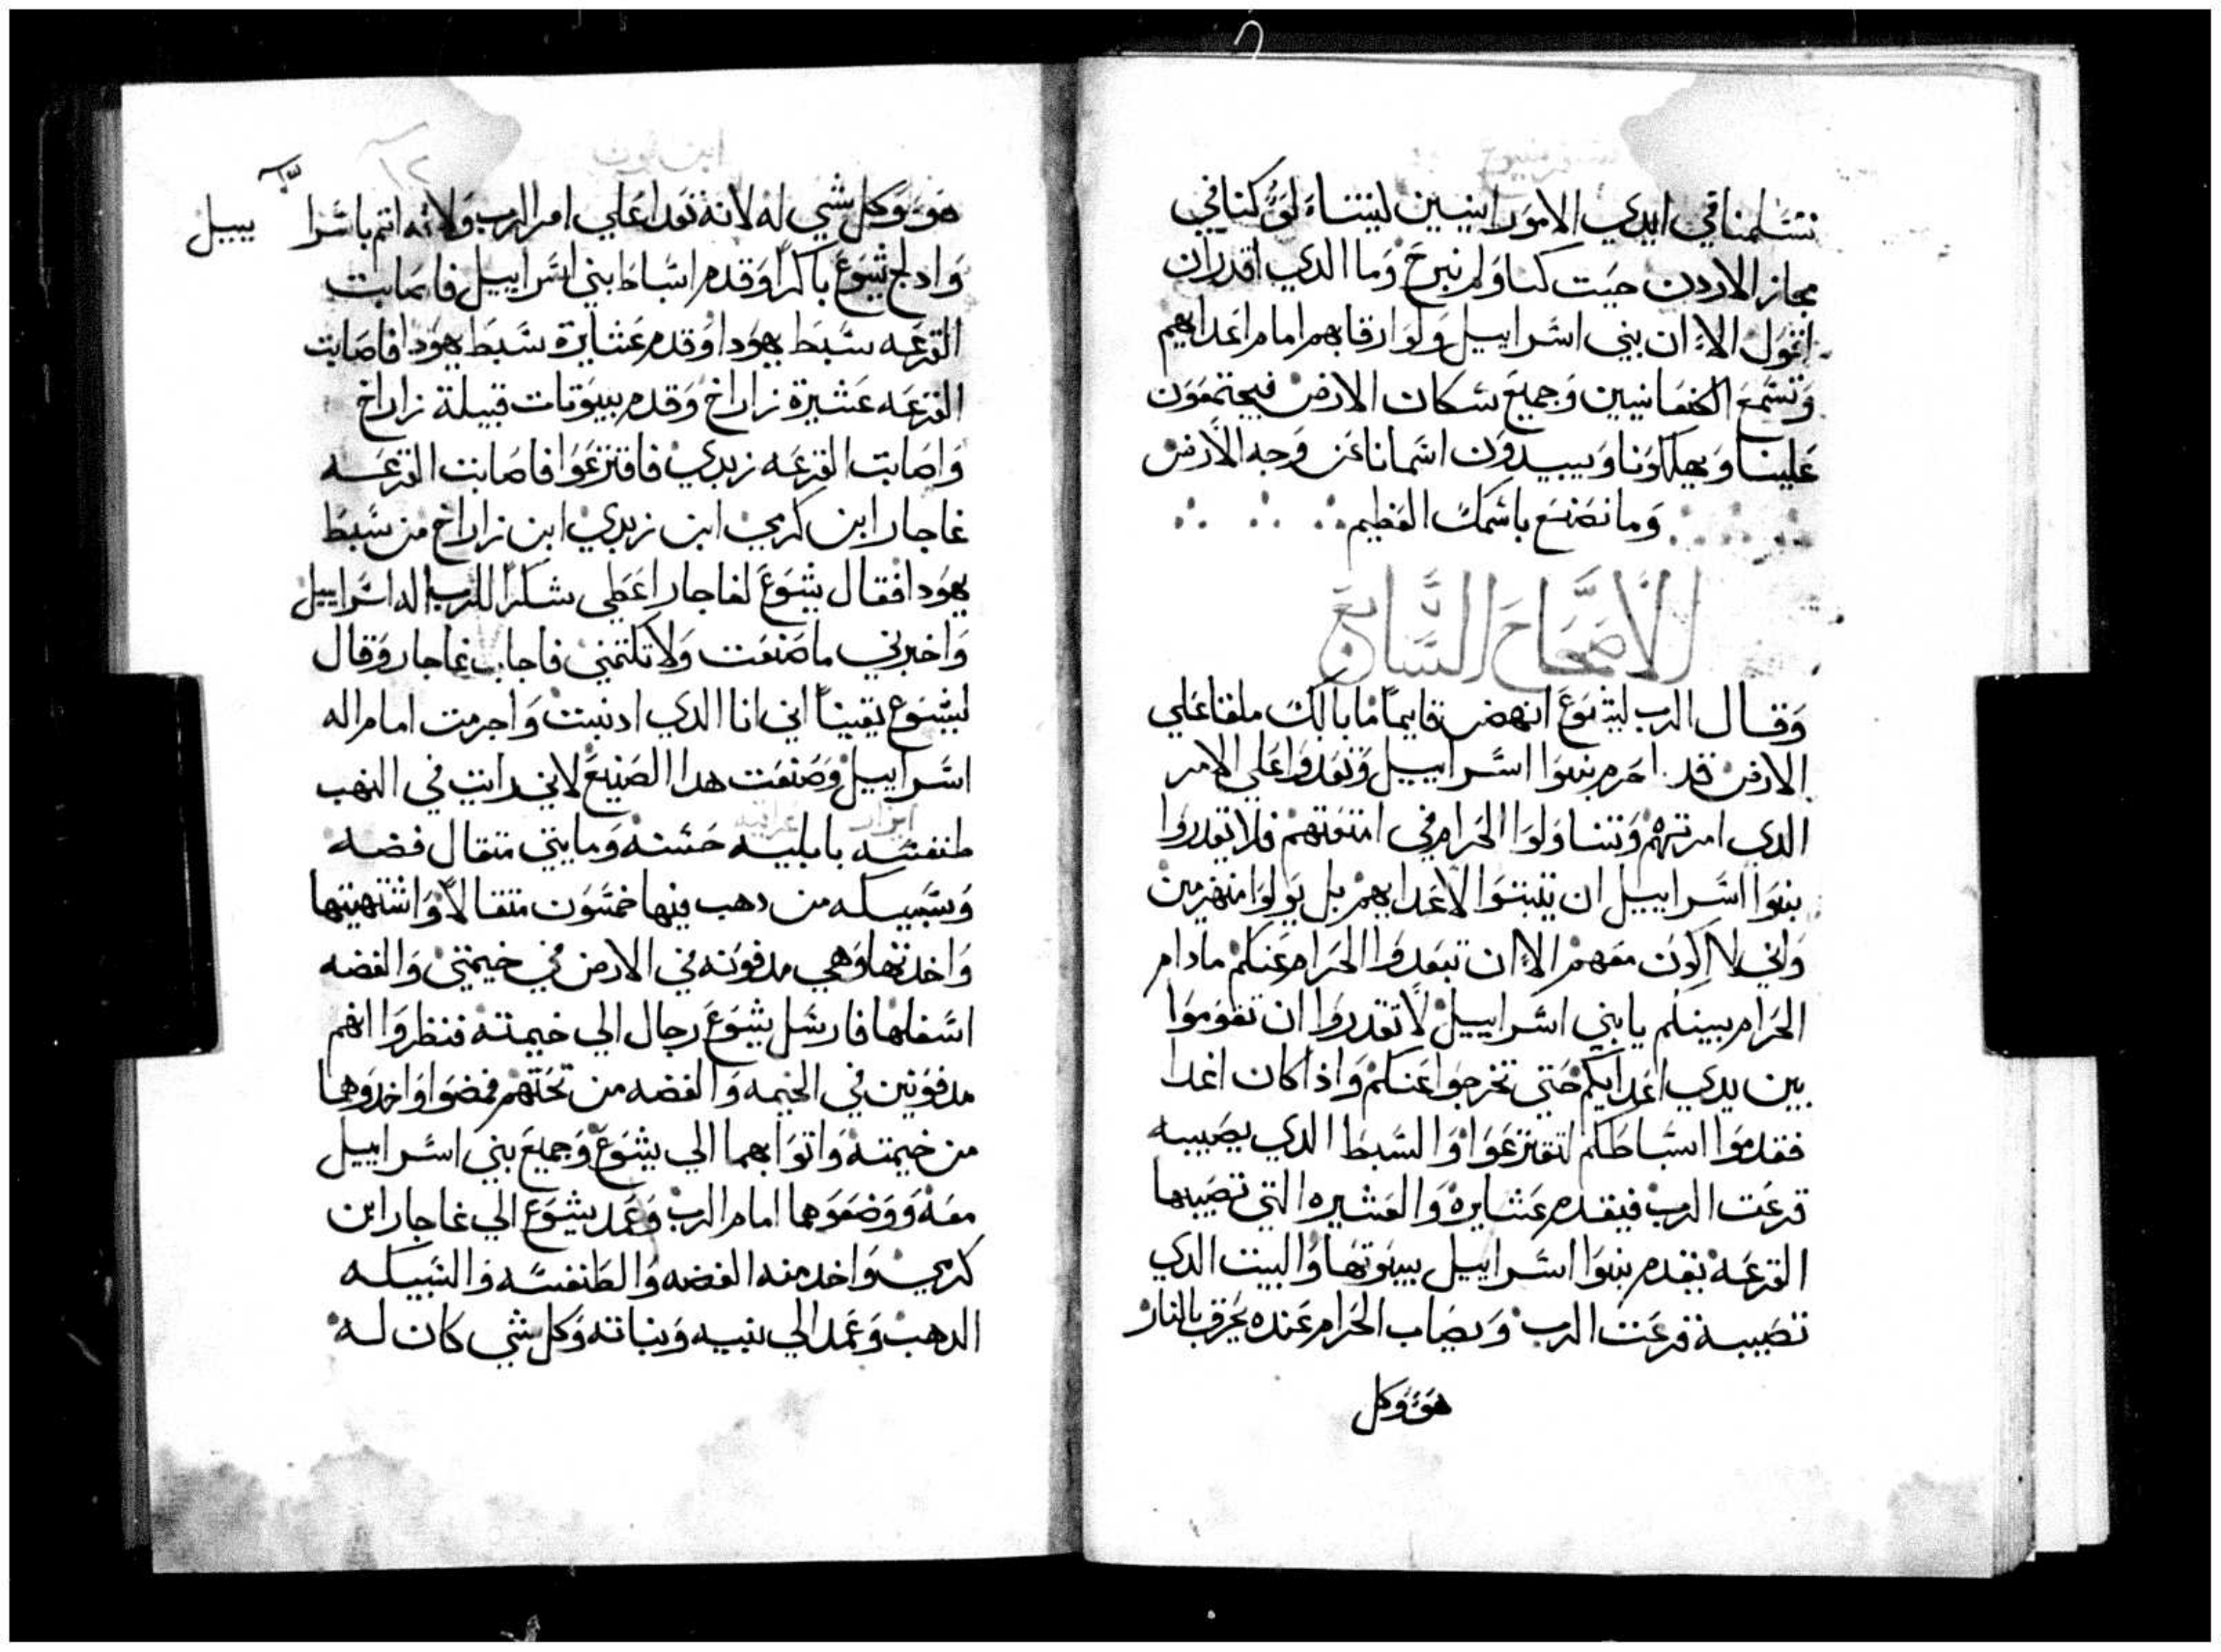 تسلمنا في ايدي الاموارنيين ليتنا لو كنا في
مجاز الاردن حيت كنا ولم نبرح وما الدي اقدر ان
اقول الا ان بني اسراييل ولوا رقابهم امام اعدايهم
وتسمع الكنعانيين وجميع سكان الارض فيجتمعون
علينا ويهلكونا ويبيدون اسمانا عن وجه الارض
وما نصنع باسمك العظيم
الاصحاح السابع
وقال الرب ليشوع انهض قايمًا ما بالك ملقا علي
الارض قد احرم بنوا اسراييل وتعدوا علي الامر
الدي امرتهم وتناولوا الحرام في امتعتهم فلا تقدروا
بنوا اسراييل ان يتبتوا لاعدايهم بل يولوا منهزمين
واني لا اكون معهم الا ان تبعدوا الحرام عنكم ما دام
الحرام بينكم يا بني اسراييل لا تقدروا ان تقوموا
بين يدي اعدايكم حتي تخرجوا عنكم واذا كان اغدا
فقدموا اسباطكم لتقترعوا والسبط الدي يصيبه
قرعت الرب فيقدم عشايره والعشيره التي تصيبها
القرعه يقدم بنوا اسراييل بيوتها والبيت الدي
تصيبه قرعت الرب ويصاب الحرام عنده يحرق بالنار
هو وكل
ابن نون
١٢
هو وكل شي له لانه تعدا علي امر الرب ولانه اتم باسرا ييل
وادلج يشوع باكرًا وقدم اسباط بني اسراييل فاصابت
القرعه سبط يهودا وقدم عشايرة سبط يهودا فاصابت
القرعه عشيرة زاراخ وقدم بيوتات قبيلة زاراخ
واصابت القرعه زبدي فاقترعوا فاصابت القرعه
غاجار ابن كرمي ابن زبدي ابن زاراخ من سبط
يهودا فقال يشوع لغاجار اعطي شكرًا للرب اله اسراييل
واخبرني ما صنعت ولا تكتمني فاجاب غاجار وقال
ليشوع يقينًا اني انا الدي ادنبت واجرمت امام اله
اسراييل وصنعت هدا الصنيع لاني رايت في النهب
طنفسه بابليه حسنه ومايتي متقال فضه
وسبيكه من دهب فيها خمسون متقالًا واشتهيتها
واخدتها وهي مدفونه في الارض في خيمتي والفضه
اسفلها فارسل يشوع رجال الي خيمته فنظروا انهم
مدفونين في الخيمه والفضه من تحتهم فمضوا واخدوهما
من خيمته واتوا بهما الي يشوع وجميع بني اسراييل
معه ووضعوهما امام الرب وعمد يشوع الي غاجار ابن
كرمي واخد منه الفضه والطنفسه والسبيكه
الدهب وعمد الي بنيه وبناته وكل شي كان له